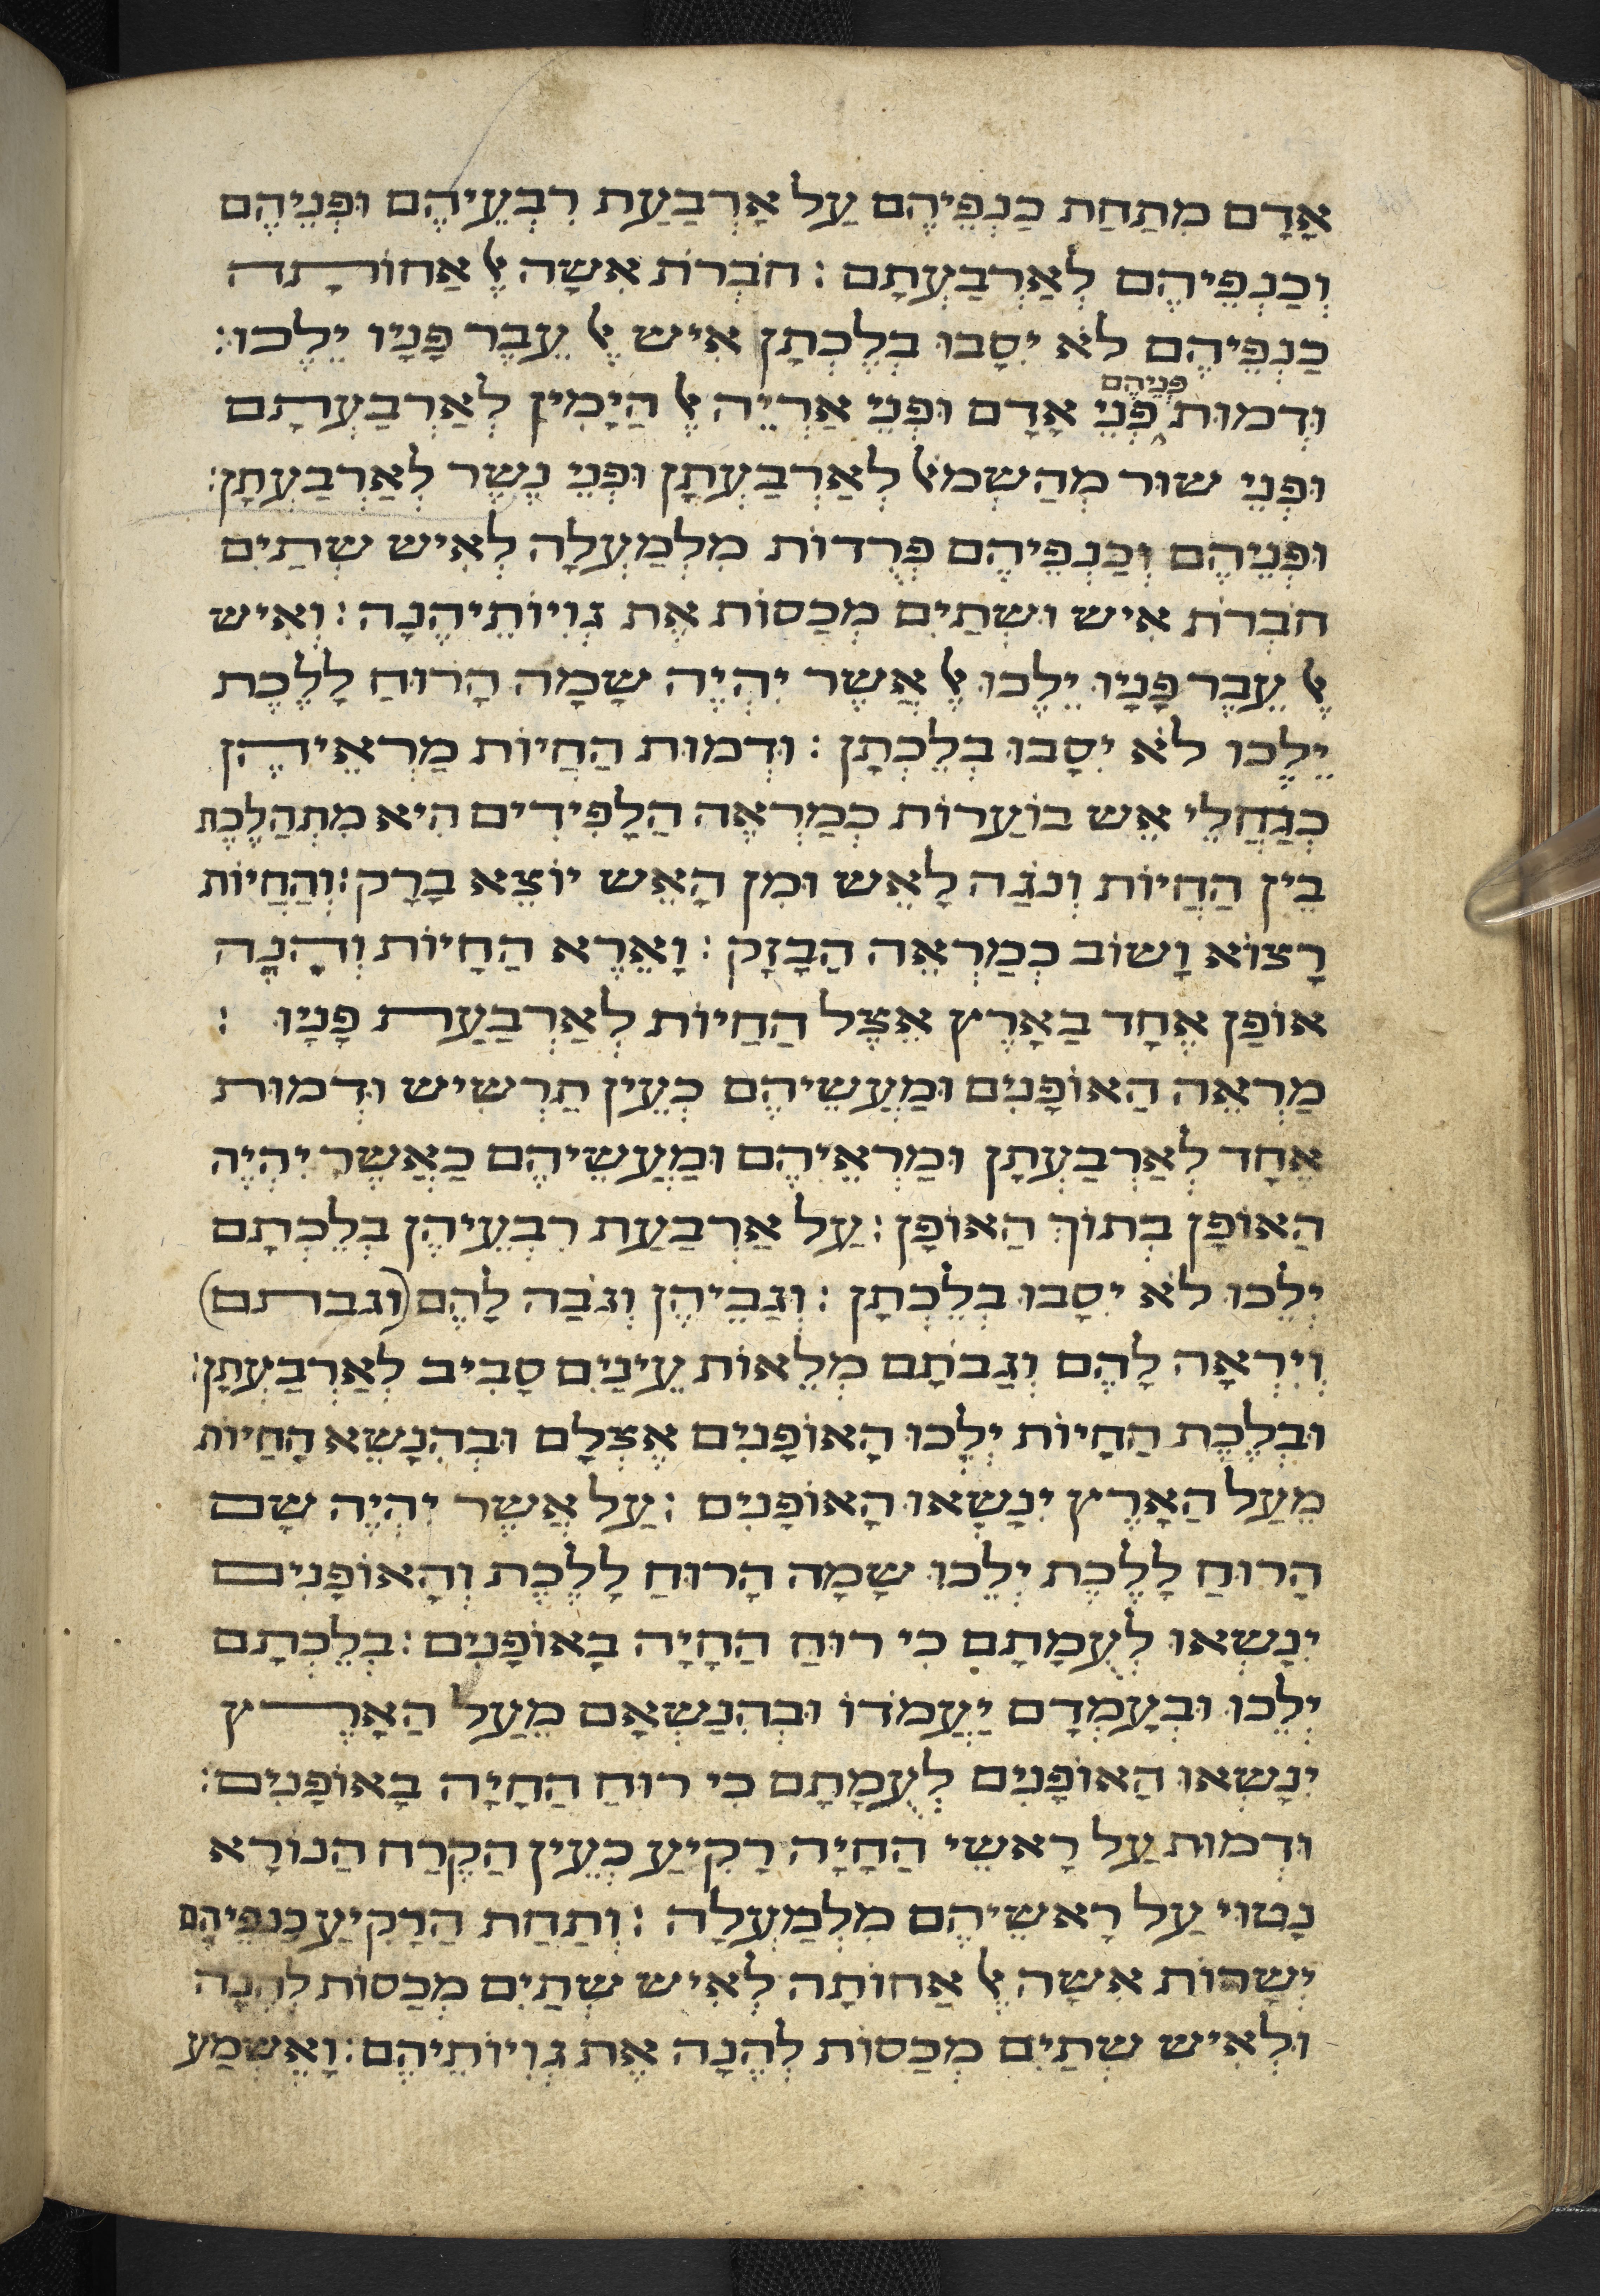 אָדָם מִתַחַת כַנְפֵיהֶם עַל אַרְבַעַת רִבְעֵיהֶם וּפְנֵיהֶם
וְכַנְפֵיהֶם לְאַרְבַעְתָם : חֹבְרֹת אִשָה אֶל אֲחוֹתָה
כַנְפֵיהֶם לֹא יִסַבוּ בְלֶכְתָן אִיש אֶל עֵבֶר פָנָיו יֵלֵכוּ :
וּדְמוּת פְנֵיהֶם פְנֵי אָדָם וּפְנֵי אַרְיֵה אֶל הַיָמִין לְאַרְבַעְתָם
וּפְנֵי שוֹר מְהַשְמֹאל לְאַרְבַעְתָן וּפְנֵי נֶשֶר לְאַרְבַעְתָן :
וּפְנֵיהֶם וְכַנְפֵיהֶם פְרֻדוֹת מִלְמַעְלָה לְאִיש שְתַיִם
חֹבְרֹת אִיש וּשְתַיִם מְכַסוֹת אֶת גְוִיוֹתֵיהֶנָה : וְאִיש
אֶל עֵבֶר פָנָיו יֵלֵכוּ אֶל אֲשֶר יִהְיֶה שָמָה הָרוּחַ לָלֶכֶת
יֵלֵכוּ לֹא יִסַבוּ בְלֶכְתָן : וּדְמוּת הַחַיוֹת מַרְאֵיהֶן
כְגַחֲלֵי אֵש בוֹעֲרוֹת כְמַרְאֵה הַלַפִידִים הִיא מִתְהַלֶכֶת
בֵין הַחַיוֹת וְנֹגַה לָאֵש וּמִן הָאֵש יוֹצֵא בָרָק : וְהַחַיוֹת
רָצוֹא וָשוֹב כְמַרְאֵה הַבָזָק : וָאֵרֶא הַחַיוֹת וְהִנֵה
אוֹפַן אֶחָד בָאָרֶץ אֵצֶל הַחַיוֹת לְאַרְבַעַת פָנָיו :
מַרְאֵה הָאוֹפַנִים וּמַעֲשֵיהֶם כְעֵין תַרְשִיש וּדְמוּת
אֶחָד לְאַרְבַעְתָן וּמַרְאֵיהֶם וּמַעֲשֵיהֶם כַאֲשֶר יִהְיֶה
הָאוֹפַן בְתוֹךְ הָאוֹפָן : עַל אַרְבַעַת רִבְעֵיהֶן בְלֶכְתָם
יֵלֵכוּ לֹא יִסַבוּ בְלֶכְתָן : וְגַבֵיהֶן וְגֹבַה לָהֶם (וגבתם)
וְיִרְאָה לָהֶם וְגַבֹתָם מְלֵאוֹת עֵינַיִם סָבִיב לְאַרְבַעְתָן :
וּבְלֶכֶת הַחַיוֹת יֵלְכוּ הָאוֹפַנִים אֶצְלָם וּבְהִנָשֵא הַחַיוֹת
מֵעַל הָאָרֶץ יִנָשְאוּ הָאוֹפַנִים : עַל אֲשֶר יִהְיֶה שָם
הָרוּחַ לָלֶכֶת יֵלֵכוּ שָמָה הָרוּחַ לָלֶכֶת וְהָאוֹפַנִים
יִנָשְאוּ לְעֻמָתָם כִי רוּחַ הַחַיָה בָאוֹפַנִים : בְלֶכְתָם
יֵלֵכוּ וּבְעָמְדָם יַעֲמֹדוּ וּבְהִנָשְאָם מֵעַל הָאָרֶץ
יִנָשְאוּ הָאוֹפַנִים לְעֻמָתָם כִי רוּחַ הַחַיָה בָאוֹפַנִים :
וּדְמוּת עַל רָאשֵי הַחַיָה רָקִיעַ כְעֵין הַקֶרַח הַנוֹרָא
נָטוּי עַל רָאשֵיהֶם מִלְמַעְלָה : וְתַחַת הָרָקִיעַ כַנְפֵיהֶם
יְשָרוֹת אִשָה אֶל אֲחוֹתָה לְאִיש שְתַיִם מְכַסוֹת לָהֵנָה
וּלְאִיש שְתַיִם מְכַסוֹת לָהֵנָה אֶת גְוִיוֹתֵיהֶם : וָאֶשְמַע